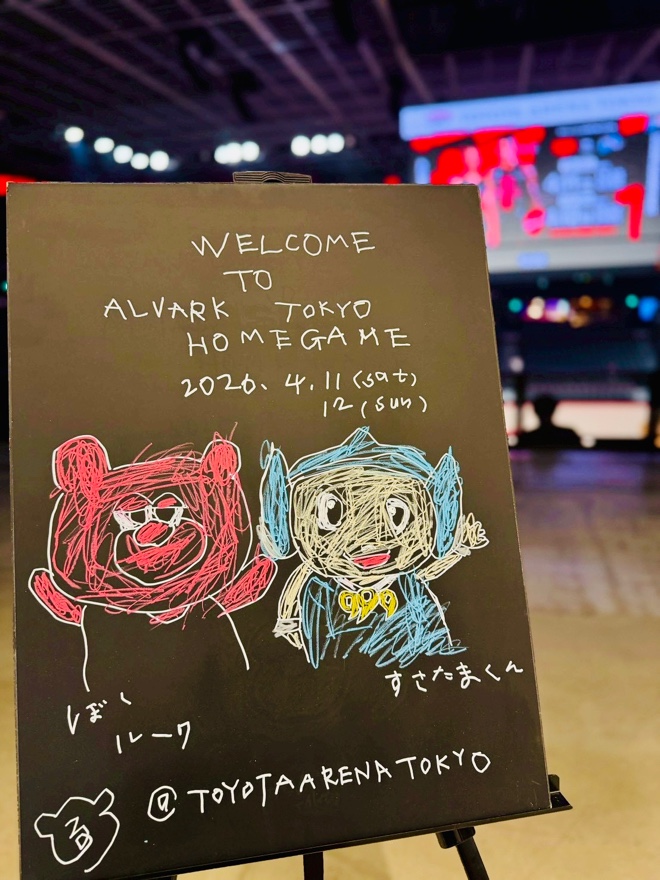 WELCOME
TO
ALVARK TOKYO
HOMEGAME
2026. 4. 11 (sat)
12 (sun)
すさたまくん
しぼく
ルーク
@ TOYOTAARENA TOKYO